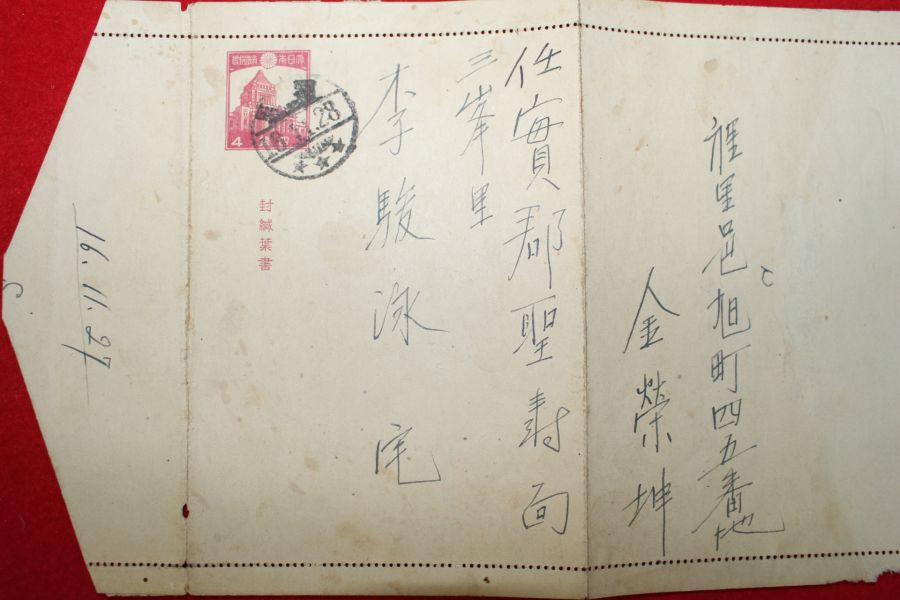 裡里邑旭町四五番地
金榮坤
任實郡聖壽面
三峯里
李駿泳宅
4
28
封緘葉書
16.11.27